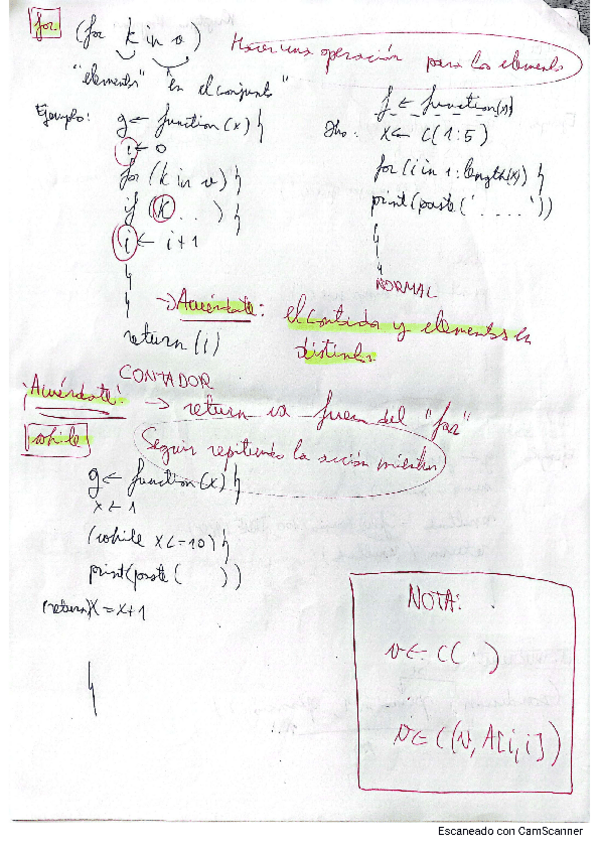 for (for k in v) Hacer una operación para los elementos
"elementos" "en el conjunto"
Ejemplo: g ← function(x) {
i ← 0
for (k in v) {
if (k . . ) {
i ← i+1
}
}
return (i)
CONTADOR
f ← function(x)
Otro: x ← c(1:5)
for(i in 1:length(x)) {
print(paste('. . . . '))
}
}
NORMAL
→ Acuérdate: el contador y elementos es
distintos
¡Acuérdate! → return va fuera del "for"
while Seguir repitiendo la acción mientras
g ← function(x) {
x ← 1
(while x<=10) {
print(paste( ))
(return) x = x+1
}
NOTA:
v ← c( · )
v ← c(v, A[i,i])
Escaneado con CamScanner